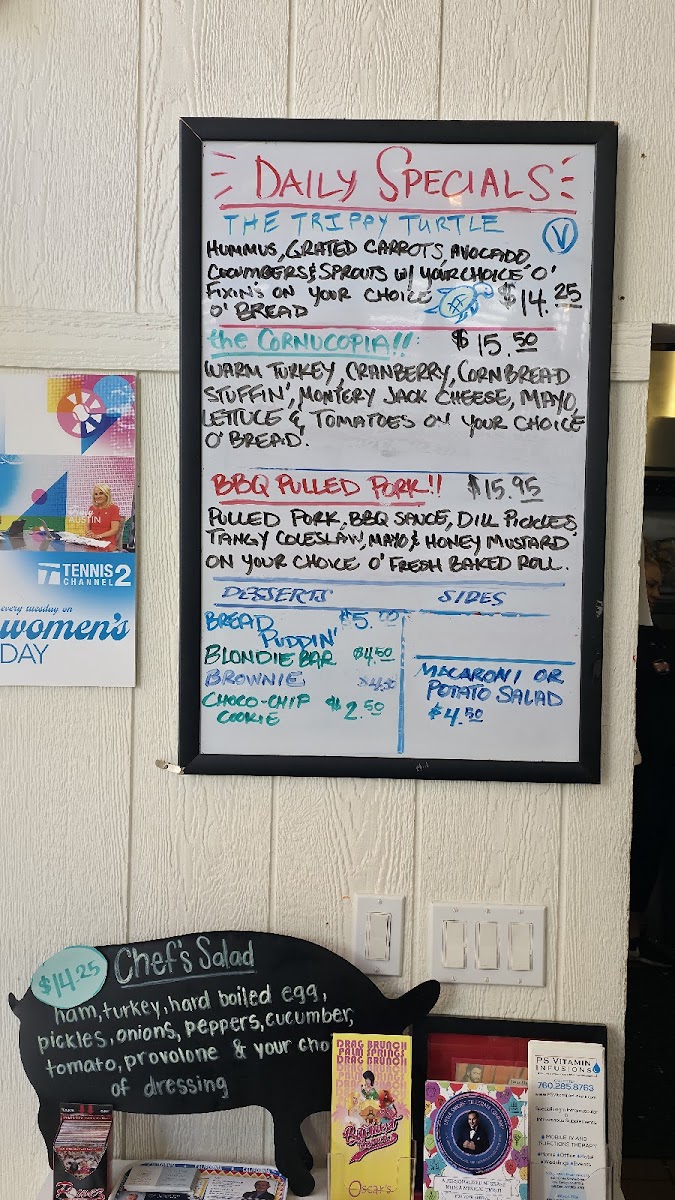 DAILY SPECIALS
THE TRIPPY TURTLE
V
HUMMUS, GRATED CARROTS, AVOCADO,
CUCUMBERS & SPROUTS W/ YOUR CHOICE O'
FIXINS ON YOUR CHOICE
O' BREAD
$14.25
the CORNUCOPIA!! $15.50
WARM TURKEY, CRANBERRY, CORNBREAD
STUFFIN', MONTERY JACK CHEESE, MAYO,
LETTUCE & TOMATOES ON YOUR CHOICE
O' BREAD.
BBQ PULLED PORK!! $15.95
PULLED PORK, BBQ SAUCE, DILL PICKLES,
TANGY COLESLAW, MAYO & HONEY MUSTARD
ON YOUR CHOICE O' FRESH BAKED ROLL.
DESSERTS
BREAD PUDDIN' $5.00
BLONDIE BAR $4.50
BROWNIE $4.50
CHOCO-CHIP
COOKIE $2.50
SIDES
MACARONI OR
POTATO SALAD
$4.50
AUSTIN
TENNIS
CHANNEL 2
every tuesday on
women's
DAY
$14.25
Chef's Salad
ham, turkey, hard boiled egg,
pickles, onions, peppers, cucumber,
tomato, provolone & your cho
of dressing
DRAG BRUNCH
PALM SPRINGS
DRAG BRUNCH
Oscar's
PS VITAMIN
INFUSIONS
760.285.8763